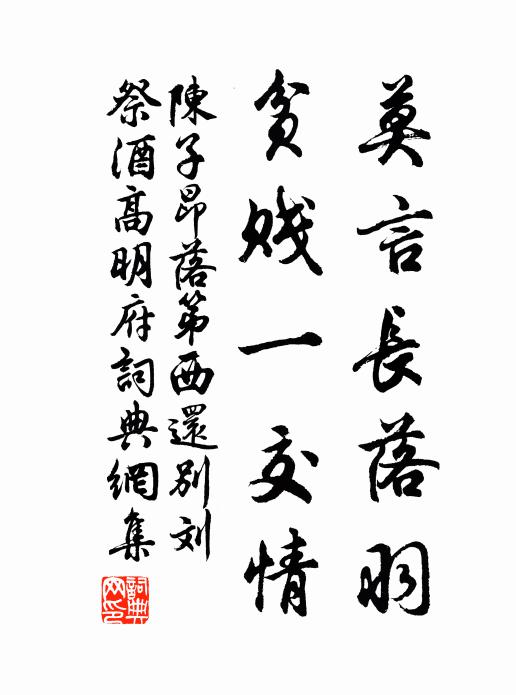 莫言長落羽
貧賤一交情
陳子昂落第西還別刘
祭酒高明府詞典網集
詞典網印